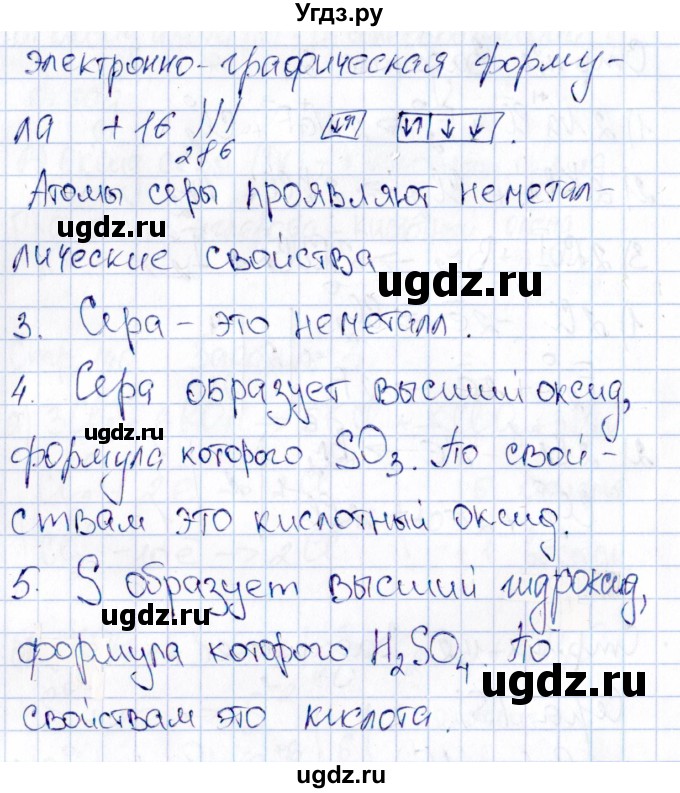 Угдз.ру
электронно-графическая форму-
ла +16 ))) ↓↑ ↓↑ ↓ ↓ .
2 8 6
Атомы серы проявляют неметал-
ugdz.ru
лические свойства
ugdz.ru
3. Сера - это неметалл.
4. Сера образует высший оксид,
ugdz.ru
формула которого SO3. По свой-
ствам это кислотный оксид.
5. S образует высший гидроксид,
ugdz.ru
формула которого H2SO4. По
ugdz.ru
свойствам это кислота.
ugdz.ru